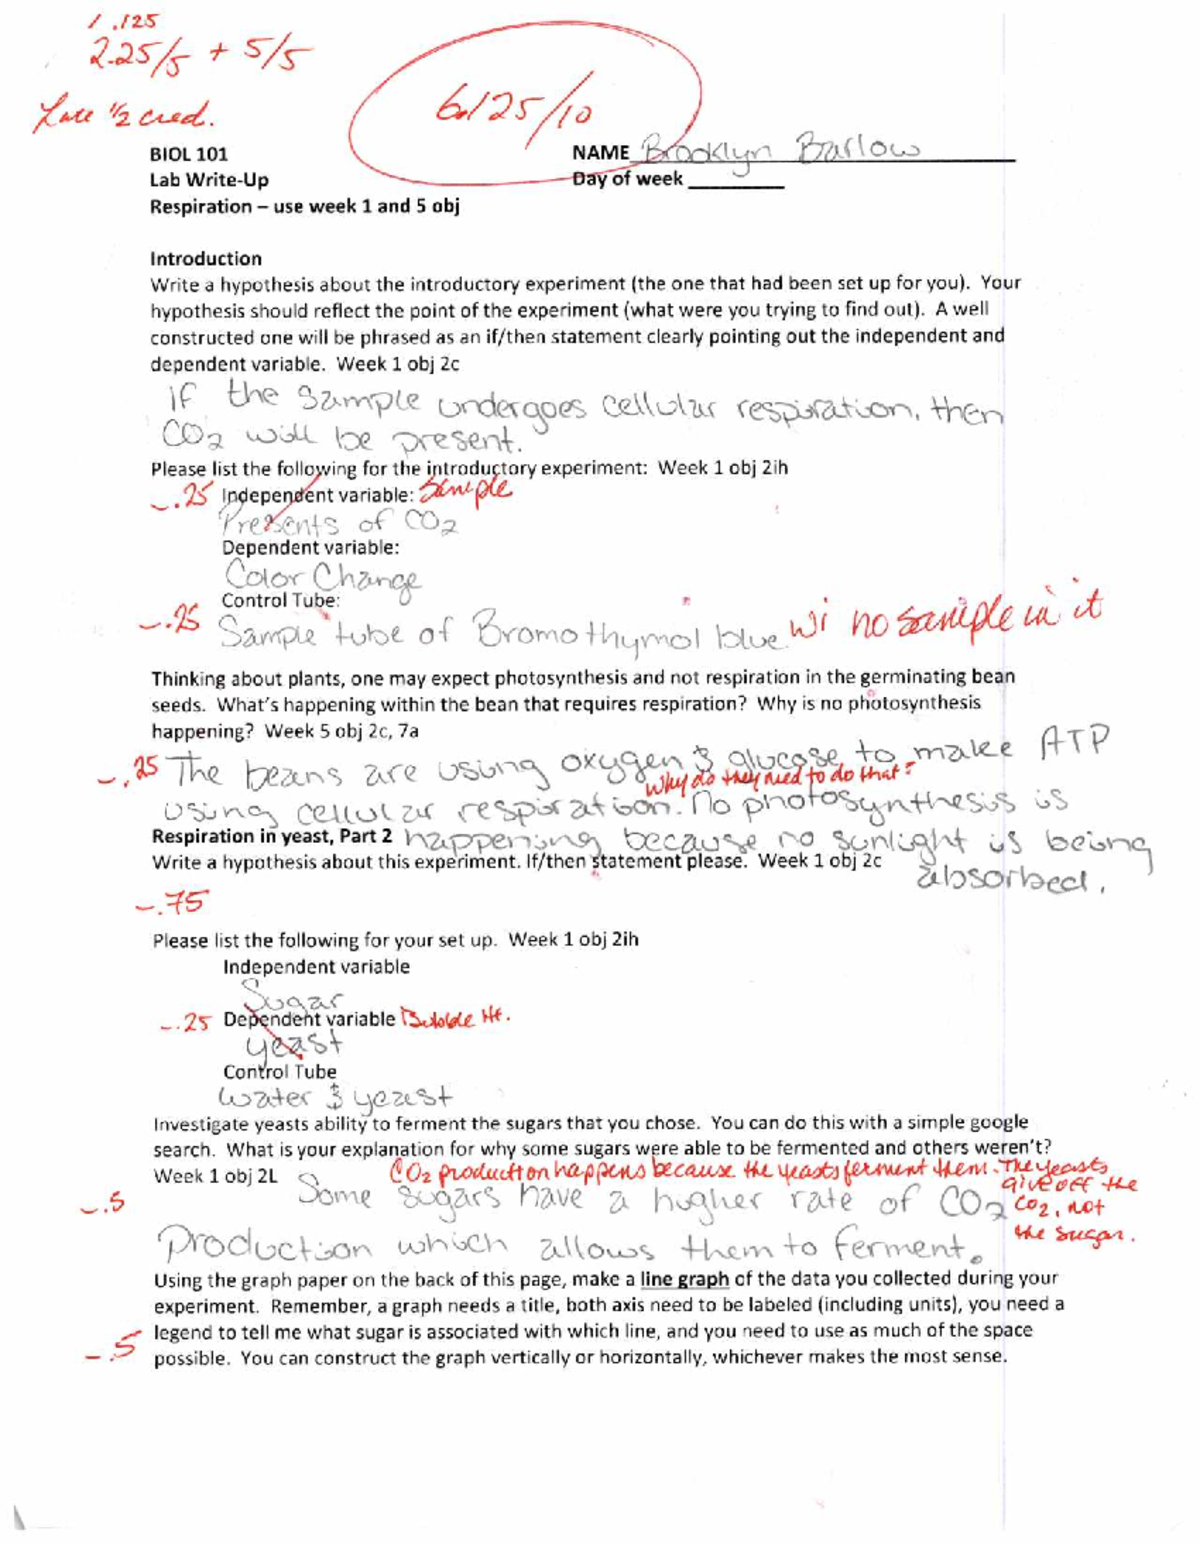 1.125
2.25/5 + 5/5
6.125/10
Late 1/2 cred.
BIOL 101
NAME Brooklyn Barlow
Lab Write-Up
Day of week
Respiration – use week 1 and 5 obj
Introduction
Write a hypothesis about the introductory experiment (the one that had been set up for you). Your
hypothesis should reflect the point of the experiment (what were you trying to find out). A well
constructed one will be phrased as an if/then statement clearly pointing out the independent and
dependent variable. Week 1 obj 2c
If the sample undergoes cellular respiration, then
CO2 will be present.
Please list the following for the introductory experiment: Week 1 obj 2ih
-.25 Independent variable: Sample
Presents of CO2
Dependent variable:
Color Change
Control Tube:
-.25 Sample tube of Bromothymol blue. w/ no sample in it
Thinking about plants, one may expect photosynthesis and not respiration in the germinating bean
seeds. What's happening within the bean that requires respiration? Why is no photosynthesis
happening? Week 5 obj 2c, 7a
-.25 The beans are using oxygen & glucose to make ATP
Why do they need to do that?
using cellular respiration. No photosynthesis is
Respiration in yeast, Part 2 happening because no sunlight is being
Write a hypothesis about this experiment. If/then statement please. Week 1 obj 2c absorbed.
-.75
Please list the following for your set up. Week 1 obj 2ih
Independent variable
Sugar
-.25 Dependent variable Bubble Ht.
yeast
Control Tube
Water & yeast
Investigate yeasts ability to ferment the sugars that you chose. You can do this with a simple google
search. What is your explanation for why some sugars were able to be fermented and others weren't?
Week 1 obj 2L CO2 production happens because the yeasts ferment them. The yeasts
give off the
-.5 Some sugars have a higher rate of CO2 CO2, not
the sugar.
Production which allows them to ferment.
Using the graph paper on the back of this page, make a line graph of the data you collected during your
experiment. Remember, a graph needs a title, both axis need to be labeled (including units), you need a
legend to tell me what sugar is associated with which line, and you need to use as much of the space
-.5 possible. You can construct the graph vertically or horizontally, whichever makes the most sense.